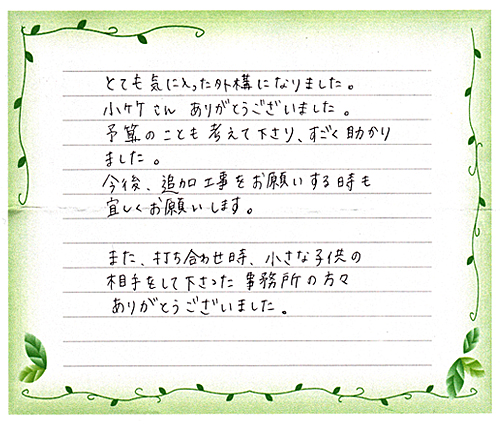 とても気に入った外構になりました。
小竹さん ありがとうございました。
予算のことも考えて下さり、すごく助かり
ました。
今後、追加工事をお願いする時も
宜しくお願いします。
また、打ち合わせ時、小さな子供の
相手をして下さった事務所の方々
ありがとうございました。